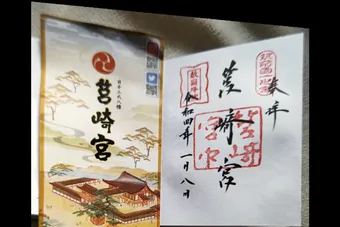 日本三大八幡
筥崎宮
奉拝
筑前國一之宮
筥崎宮
筥崎宮印
敵國降伏
令和四年一月八日